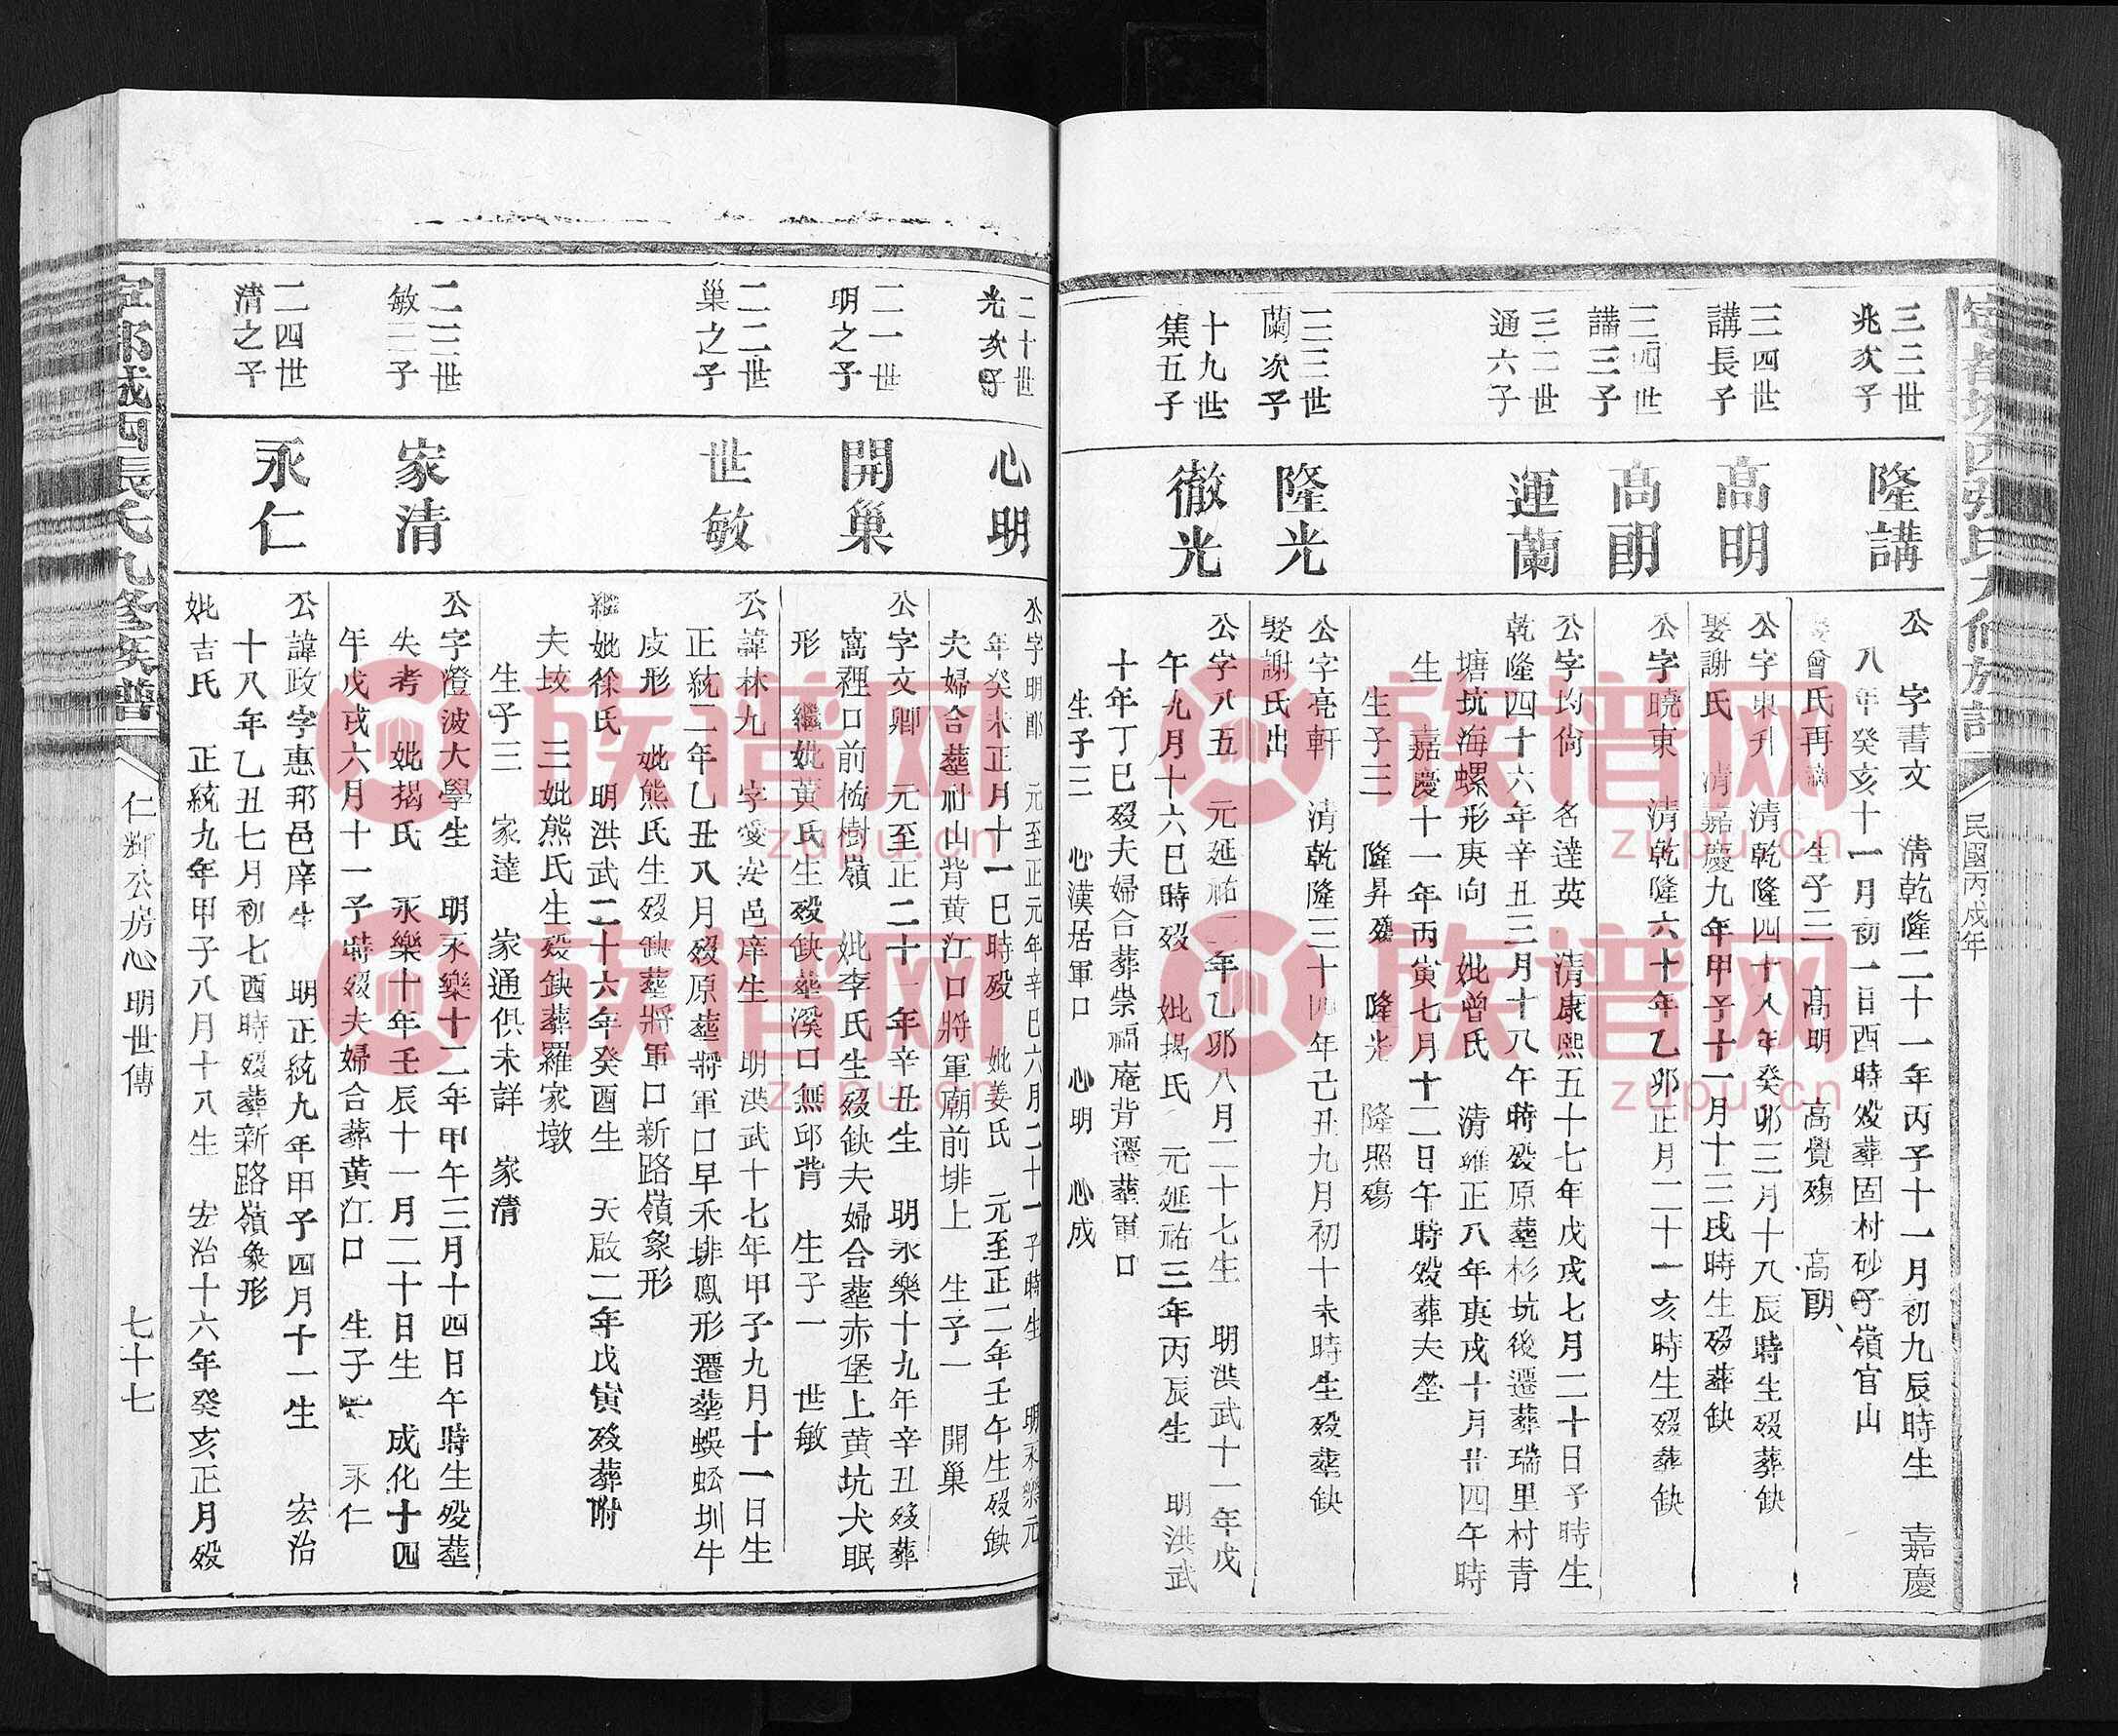 民國丙戌年
三三世
兆次子
隆講
公 字書文 清乾隆二十一年丙子十一月初九辰時生 嘉慶
八年癸亥十一月初一日酉時殁葬固村砂子嶺官山
曾氏再 生子三 高明 高覺殤 高朗
三四世
講長子
高明
公字東升 清乾隆四十八年癸卯三月十八辰時生殁葬缺
娶謝氏 清嘉慶九年甲子十一月十三戌時生殁葬缺
三四世
講三子
高朗
公字曉東 清乾隆六十年乙卯正月二十一亥時生殁葬缺
三二世
通六子
運蘭
公字均尙 名達英 清康熙五十七年戊戌七月二十日子時生
乾隆四十六年辛丑三月十八午時殁原塟杉坑後遷葬瑞里村青
塘坑海螺形庚向 妣曾氏 清雍正八年庚戌十月廿四午時
生 嘉慶十一年丙寅七月十二日午時殁葬夫塋
生子三 隆昇殤 隆光 隆照殤
三三世
蘭次子
隆光
公字亮軒 清乾隆三十四年己丑九月初十未時生殁塟缺
娶謝氏出
十九世
集五子
徹光
公字八五 元延祐二年乙卯八月二十七生 明洪武十一年戊
午九月十六巳時殁 妣揭氏 元延祐三年丙辰生 明洪武
十年丁巳殁夫婦合葬崇福庵背遷塟軍口
生子三 心漢居軍口 心明 心成
二十世
光次子
心明
公字明郎 元至正元年辛巳六月二十一子時生 明永樂元
年癸未正月十一巳時殁 妣姜氏 元至正二年壬午生殁缺
夫婦合塟社山背黄江口將軍廟前排上 生子一 開巢
二一世
明之子
開巢
公字文卿 元至正二十一年辛丑生 明永樂十九年辛丑殁葬
窩裡口前梅樹嶺 妣李氏生殁缺夫婦合塟赤堡上黄坑犬眠
形 繼妣黄氏生殁缺塟溪口無邱背 生子一 世敏
二二世
巢之子
世敏
公諱林九 字愛安邑庠生 明洪武十七年甲子九月十一日生
正統二年乙丑八月殁原塟將軍口早禾排鳳形遷塟蜈蚣圳牛
皮形 妣熊氏生殁缺塟將軍口新路嶺象形
繼妣徐氏 明洪武二十六年癸酉生 天啟二年戊寅殁葬附
夫坟 三妣熊氏生殁缺葬羅家墩
生子三 家達 家通俱未詳 家清
二三世
敏三子
家清
公字澄波大學生 明永樂十二年甲午三月十四日午時生殁塟
失考 妣揭氏 永樂十年壬辰十一月二十日生 成化十四
午戊戌六月十一子時殁夫婦合葬黄江口 生子一 永仁
二四世
清之子
永仁
公諱政字惠邦邑庠生 明正統九年甲子四月十一生 宏治
十八年乙丑七月初七酉時殁葬新路嶺象形
妣吉氏 正統九年甲子八月十八生 宏治十六年癸亥正月殁
寧都城西張氏九修族譜
仁輝公房心明世傳
七十七
族谱网
zupu.cn
族谱网
zupu.cn
族谱网
zupu.cn
族谱网
zupu.cn